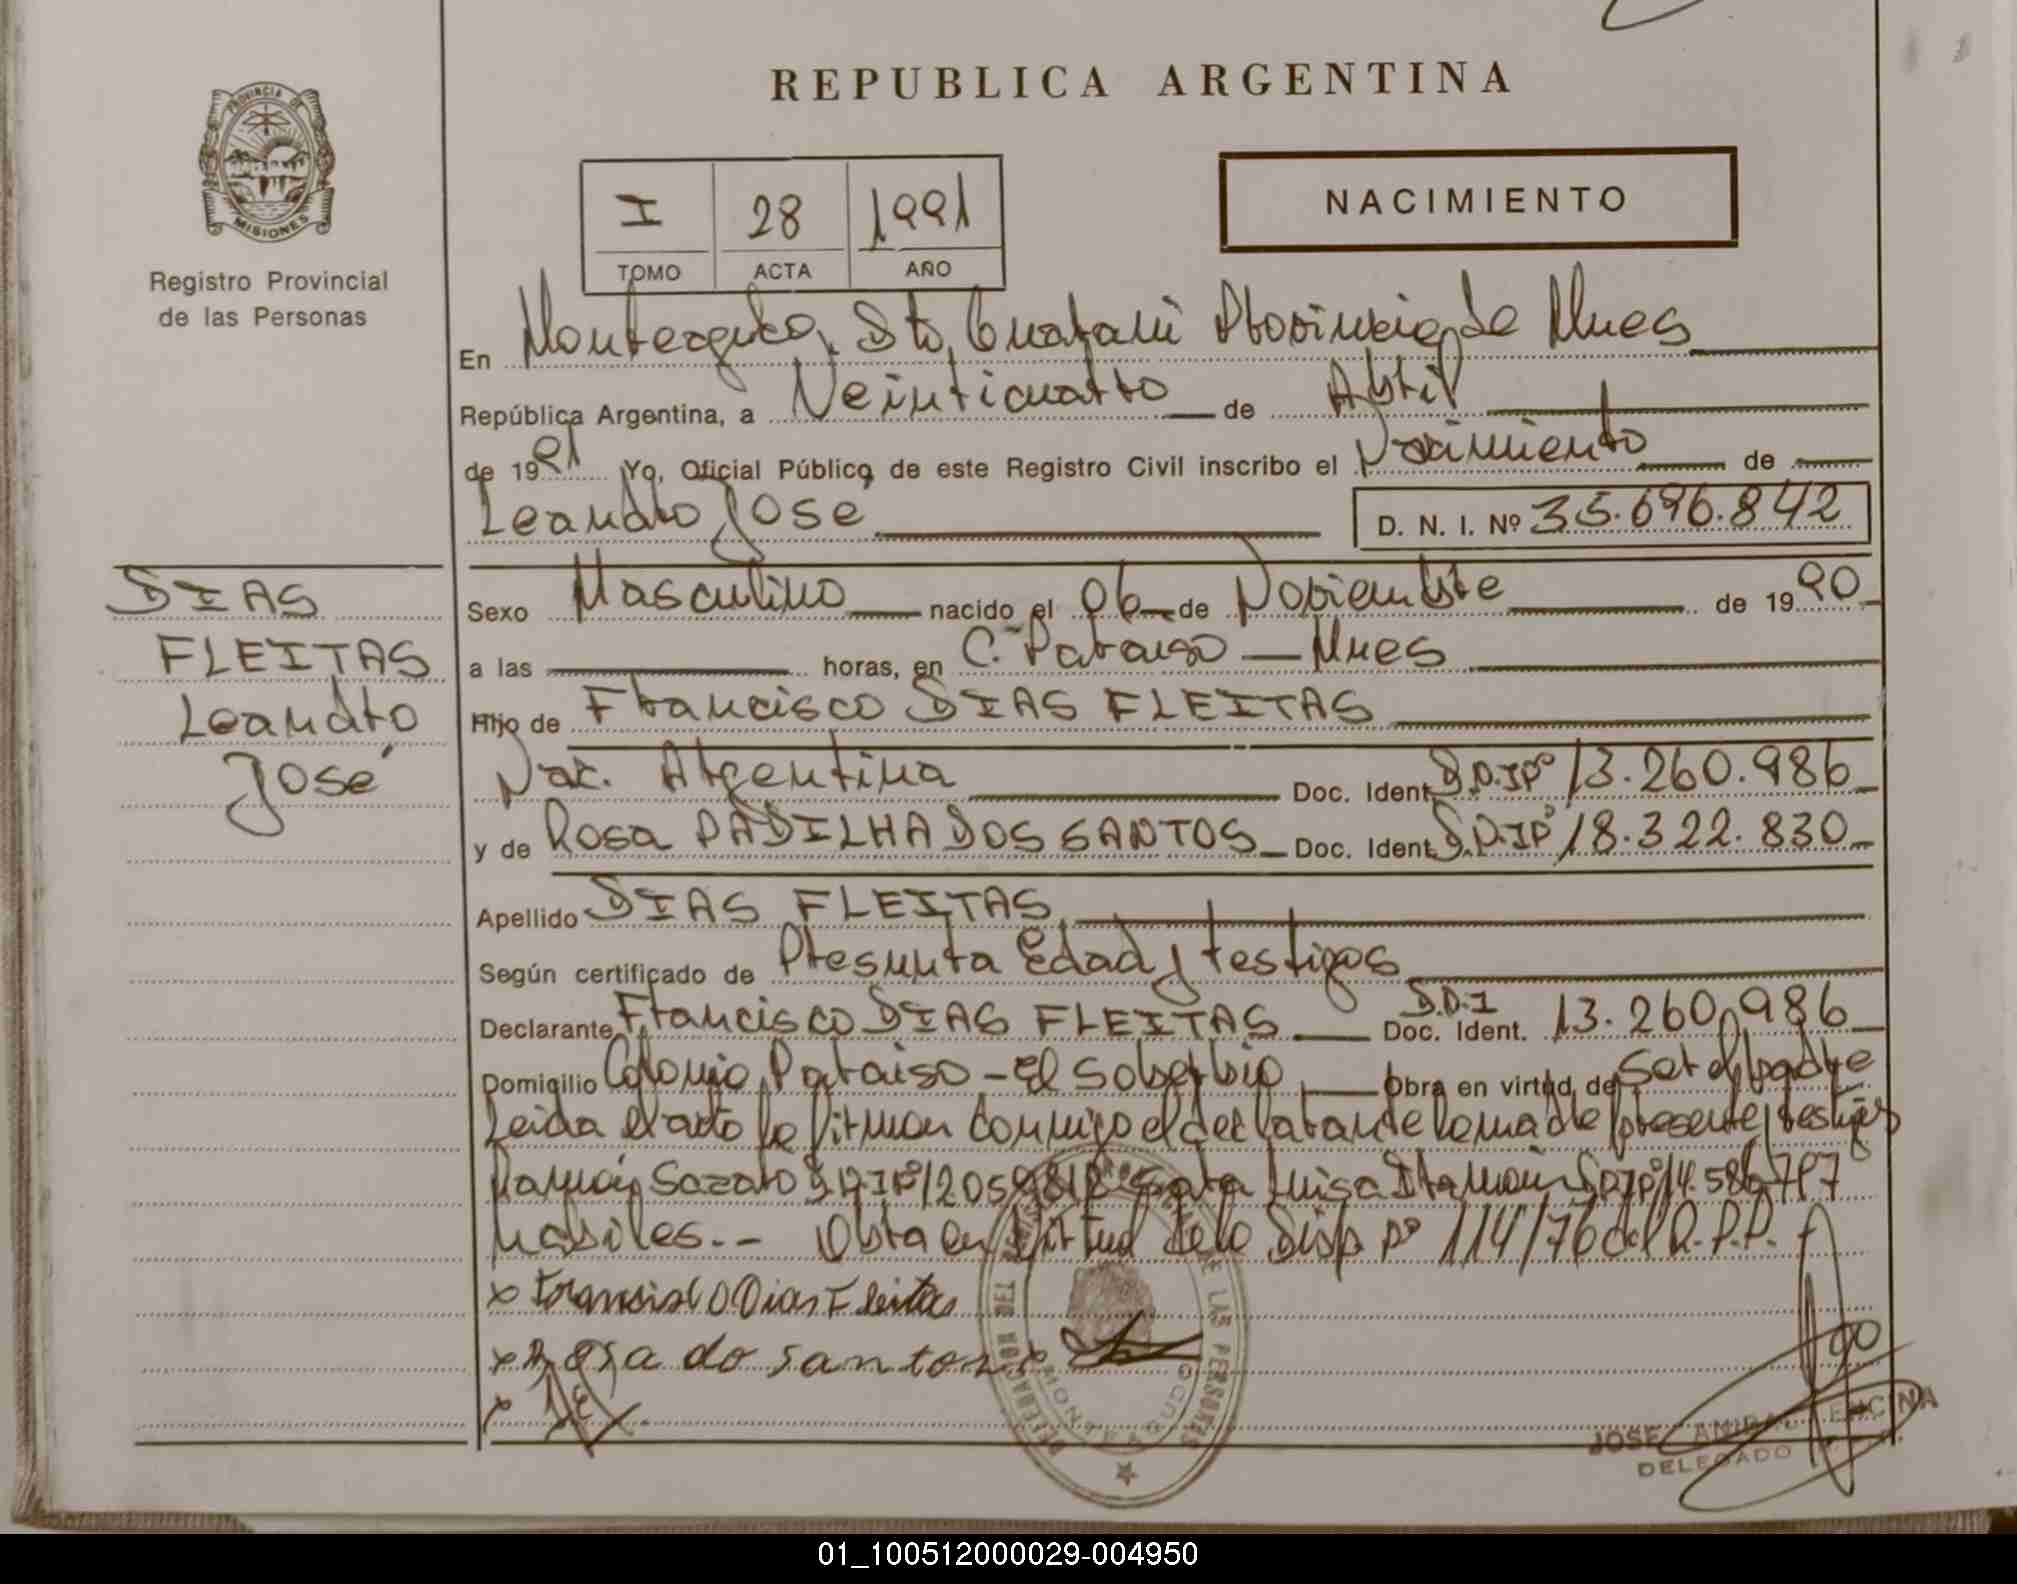 REPUBLICA ARGENTINA
PROVINCIA DE
MISIONES
Registro Provincial
de las Personas
I 28 1991
TOMO ACTA AÑO
NACIMIENTO
En Monteagudo, Dto. Guaraní Provincia de Mnes
República Argentina, a Veinticuatro de Abril
de 1991 Yo, Oficial Público de este Registro Civil inscribo el Nacimiento de
Leandro José D. N. I. Nº 35.696.842
DIAS
FLEITAS
Leandro
José
Sexo Masculino nacido el 06 de Noviembre de 1990
a las horas, en C. Paraiso - Mnes
Hijo de Francisco DIAS FLEITAS
Nac. Argentina Doc. Ident. 13.260.986
y de Rosa PADILHA DOS SANTOS Doc. Ident. 18.322.830
Apellido DIAS FLEITAS
Según certificado de Presunta Edad y testigos
Declarante Francisco DIAS FLEITAS Doc. Ident. 13.260.986
Domicilio Colonia Paraiso - El Soberbio Obra en virtud de Ser el padre
Leida el acta la firman conmigo el declarante la madre presente y testigos
Ramón Luisa
habiles.-- Obra en virtud de la Disp Nº 114/76 del R.P.P.
x Francisco Dias Fleitas
x Rosa do santos x
x
DE LAS PERSONAS
JOSE ENCINA
DELEGADO
01_100512000029-004950